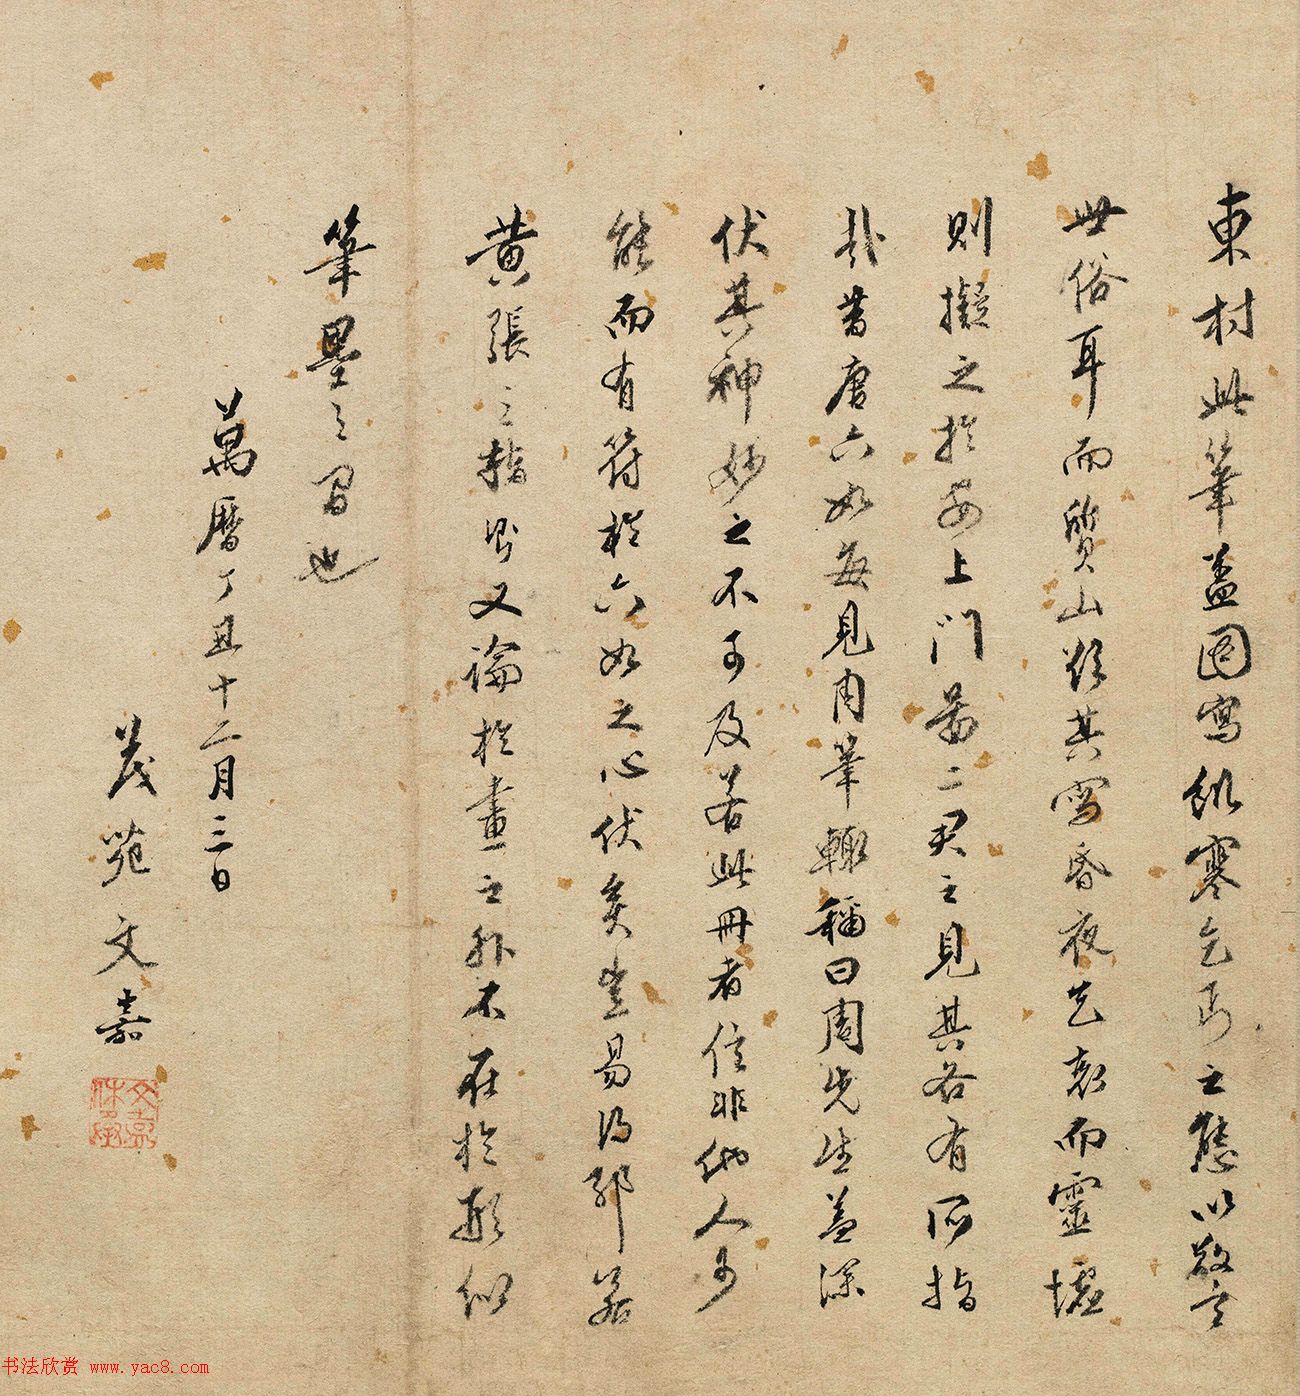 東村此筆蓋圖寫飢寒乞丐之態以警言
世俗耳而質山則其寫昏夜乞哀而靈墟
則擬之於安上門圖二君之見其各有所指
哉昔唐六如每見周筆輒稱曰周先生蓋深
伏其神妙之不可及若此冊者信非他人可
能而有符於六如之心伏矣豈易得耶若
黃張之指則又論於畫之外不在於形似
筆墨之間也
萬曆丁丑十二月三日
茂苑文嘉
文嘉休承
书法欣赏 www.yac8.com